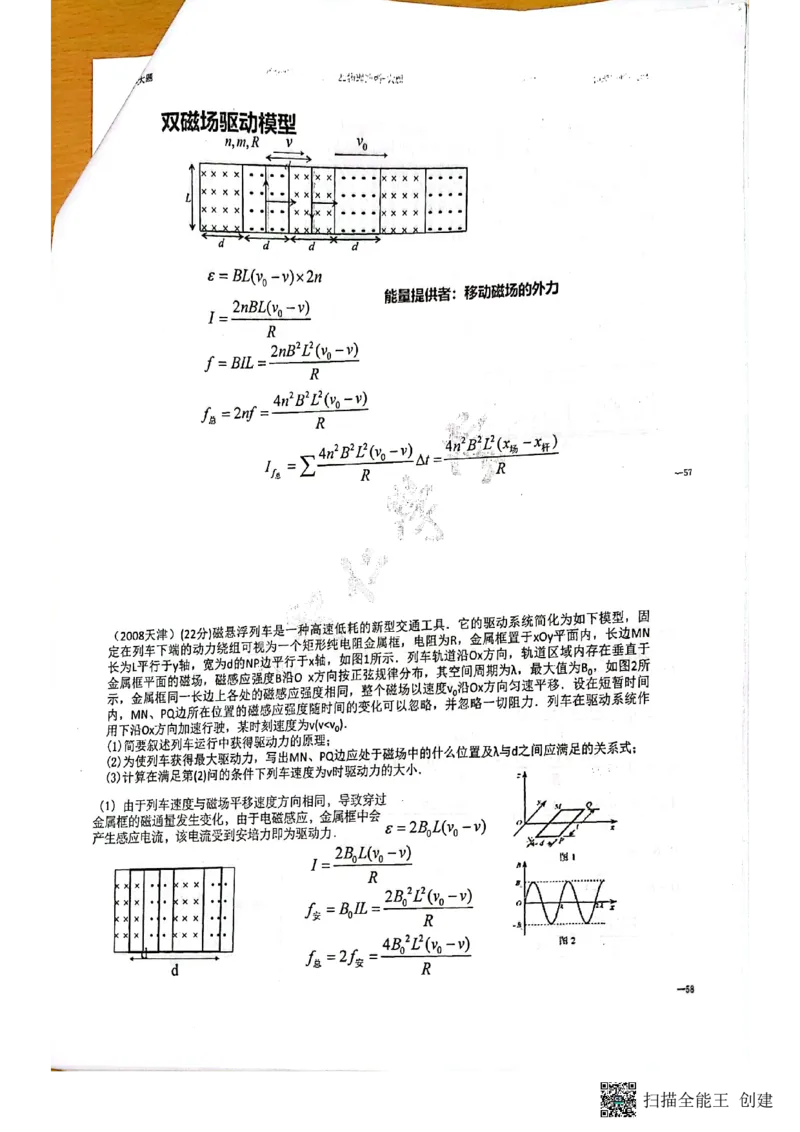 大题
双磁场驱动模型
n,m,R v v₀
d
L
d d d d
ε = BL(v₀ − v)×2n
能量提供者：移动磁场的外力
I = 2nBL(v₀ − v) / R
f = BIL = 2nB²L²(v₀ − v) / R
f总 = 2nf = 4n²B²L²(v₀ − v) / R
I f总 = ∑ 4n²B²L²(v₀ − v) / R Δt = 4n²B²L²(x场 − x杆) / R
—57
（2008天津）(22分)磁悬浮列车是一种高速低耗的新型交通工具．它的驱动系统简化为如下模型，固
定在列车下端的动力绕组可视为一个矩形纯电阻金属框，电阻为R，金属框置于xOy平面内，长边MN
长为L平行于y轴，宽为d的NP边平行于x轴，如图1所示．列车轨道沿Ox方向，轨道区域内存在垂直于
金属框平面的磁场，磁感应强度B沿O x方向按正弦规律分布，其空间周期为λ，最大值为B₀，如图2所
示，金属框同一长边上各处的磁感应强度相同，整个磁场以速度v₀沿Ox方向匀速平移．设在短暂时间
内，MN、PQ边所在位置的磁感应强度随时间的变化可以忽略，并忽略一切阻力．列车在驱动系统作
用下沿Ox方向加速行驶，某时刻速度为v(v<v₀)．
(1)简要叙述列车运行中获得驱动力的原理；
(2)为使列车获得最大驱动力，写出MN、PQ边应处于磁场中的什么位置及λ与d之间应满足的关系式；
(3)计算在满足第(2)问的条件下列车速度为v时驱动力的大小．
（1）由于列车速度与磁场平移速度方向相同，导致穿过
金属框的磁通量发生变化，由于电磁感应，金属框中会
产生感应电流，该电流受到安培力即为驱动力．
ε = 2B₀L(v₀ − v)
I = 2B₀L(v₀ − v) / R
f安 = B₀IL = 2B₀²L²(v₀ − v) / R
f总 = 2f安 = 4B₀²L²(v₀ − v) / R
d
d
z
y M Q
O x
N d P l
图1
B
B₀
O λ 2λ x
-B₀
图2
—58
扫描全能王 创建